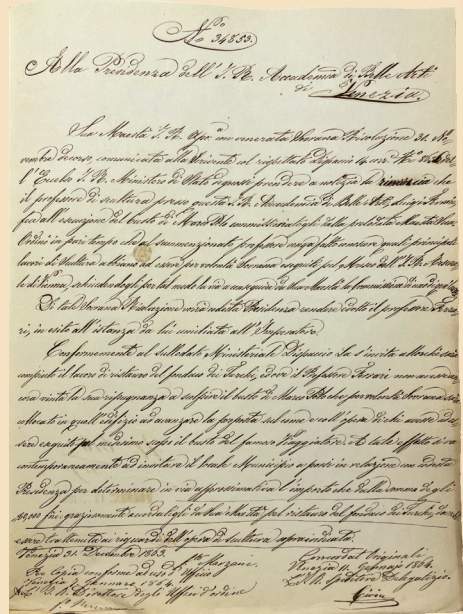 N.ro 34853.
Alla Presidenza dell' I. R. Accademia di Belle Arti
di Venezia.
Sua Maestà I. R. Ap. con venerata Sovrana Risoluzione 21. No-
vembre decorso, comunicata alla
l'Eccelso I. R. Ministero di Stato degnossi prendere a notizia la rinuncia che
il professore di scultura presso questa I. R. Accademia di Belle Arti, Luigi Ferrari,
fece all'esecuzione del busto di Marco Polo commissionatogli dalla prelodata Maestà Sua.
Ordinò in pari tempo che il summenzionato professore
lavori di scultura abbiano ad essere per volontà Sovrana eseguiti pel Museo dell' I. R. Arsenale
di Vienna,
Di tale Sovrana Risoluzione vorrà codesta Presidenza rendere edotto il professore Ferra-
ri, in esito all'istanza da lui umiliata all' Imperatore.
Conformemente al sullodato Ministeriale Dispaccio La s'invita allorché sarà
compiuto il lavoro di ristauro del fondaco dei Turchi, ed ove il Professore Ferrari non avesse an-
cora vinta la sua ripugnanza a scolpire il busto di Marco Polo che per volontà Sovrana sarà
collocato in quell' edifizio ad avanzare la proposta sul come e coll' opera di chi avesse ad es-
sere eseguito pel medesimo scopo il busto del famoso Viaggiatore. A tale effetto si va
contemporaneamente ad invitare il locale Municipio a porsi in relazione con codesta
Presidenza per determinare in via approssimativa l'importo che dalla somma degli
fni, graziosamente accordati da Sua Maestà pel ristauro del fondaco dei Turchi, dovrà
essere trattenuto ai riguardi dell' opera di scultura appraindicata.
Venezia 21. Dicembre 1863. Marzani
Per copia conforme ad uso d' Ufficio
Venezia Gennaro 1864.
Il Direttore degli Uffici d'ordine
Come dall' Originale
Venezia 11. Gennajo 1864.
L' I. R. Speditore Delegatizio